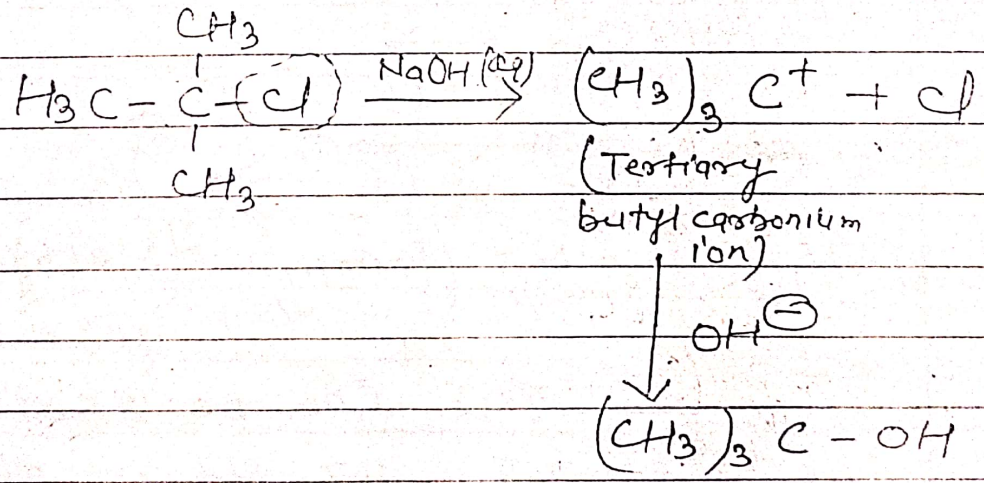 CH3
H3C - C - Cl NaOH (aq) (CH3)3 C+ + Cl
CH3
(Tertiary
butyl carbonium
ion)
OH⊖
(CH3)3 C - OH